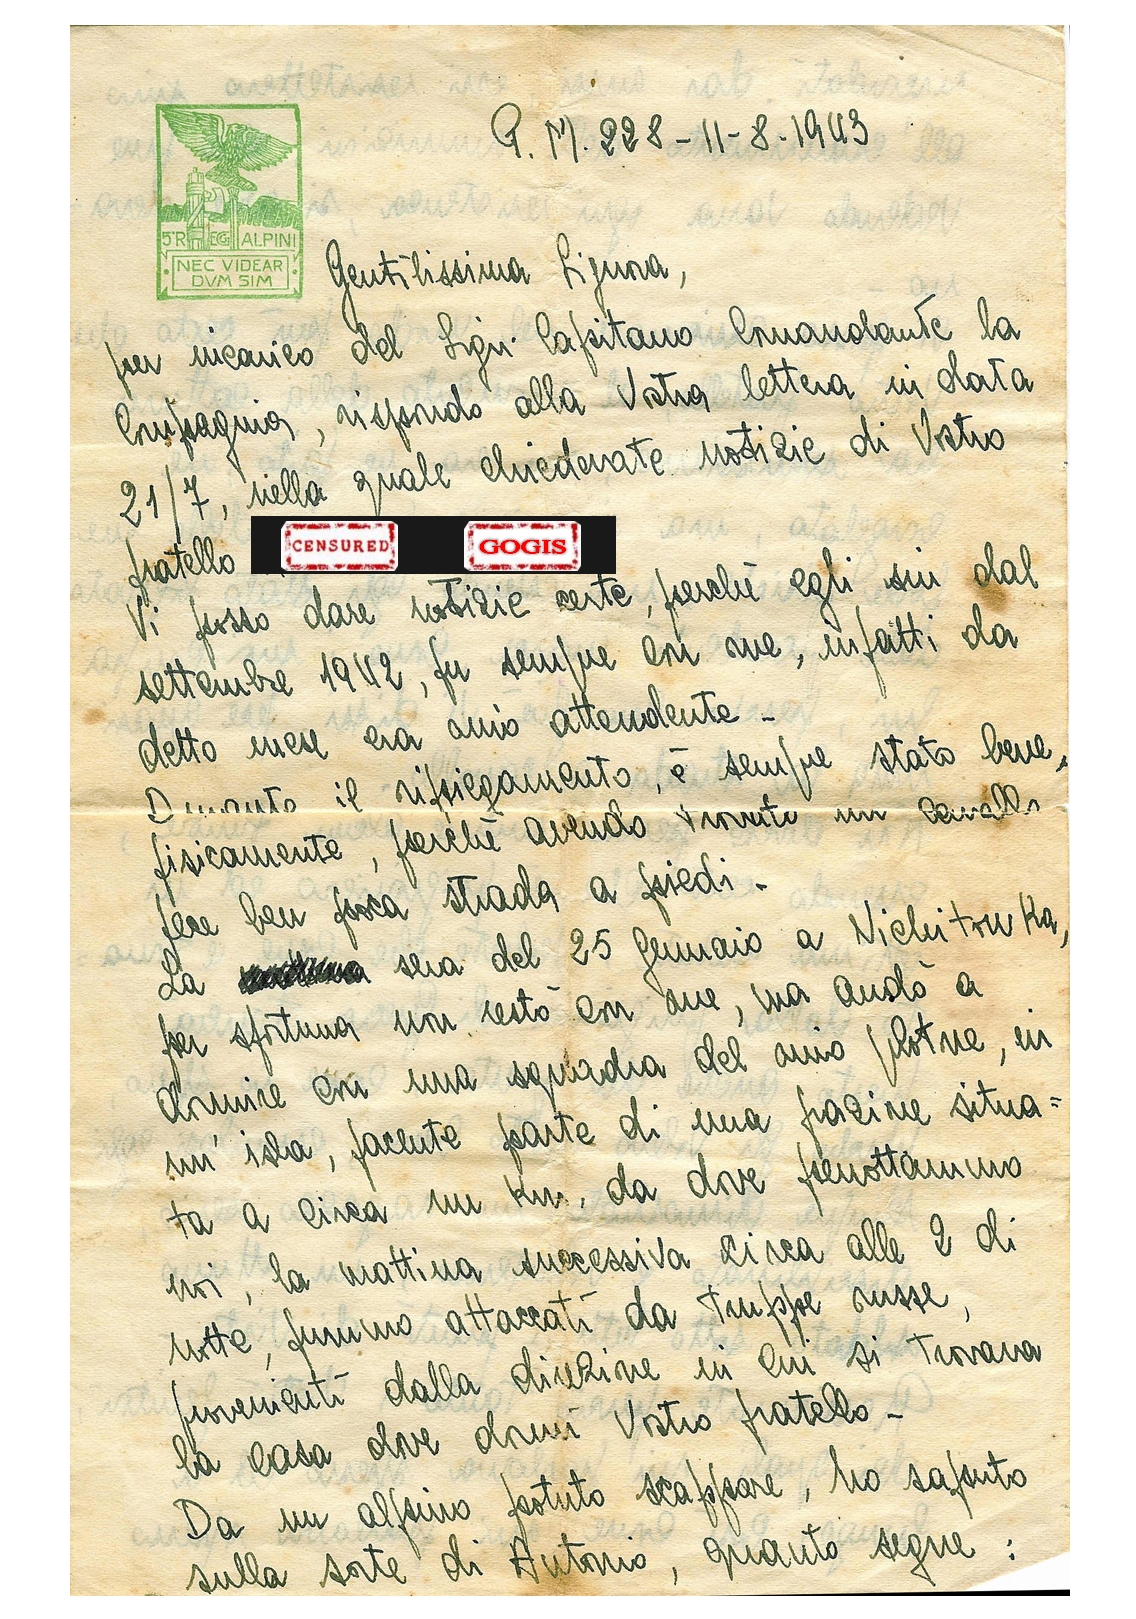 P. M. 228 - 11 - 8 - 1943
5° REG ALPINI
NEC VIDEAR
DVM SIM
Gentilissima Signora,
per incarico del Sigr. Capitano Comandante la
Compagnia, rispondo alla Vostra lettera in data
21/7, nella quale chiedevate notizie di Vostro
fratello
CENSURED GOGIS
Vi posso dare notizie certe, perchè egli sin dal
settembre 1942, fu sempre con me, infatti da
detto mese era mio attendente -
Durante il ripiegamento, è sempre stato bene,
fisicamente, perchè avendo trovato un cavallo
fece ben poca strada a piedi -
La sera del 25 Gennaio a Nichitowka,
per sfortuna non restò con me, ma andò a
dormire con una squadra del mio plotone, in
un' isba, facente parte di una frazione situa=
ta a circa un Km. da dove pernottammo
noi, la mattina successiva circa alle 2 di
notte, fummo attaccati da truppe russe,
provenienti dalla direzione in cui si trovava
la casa dove dormì Vostro fratello -
Da un alpino potuto scappare, ho saputo
sulla sorte di Antonio, quanto segue :